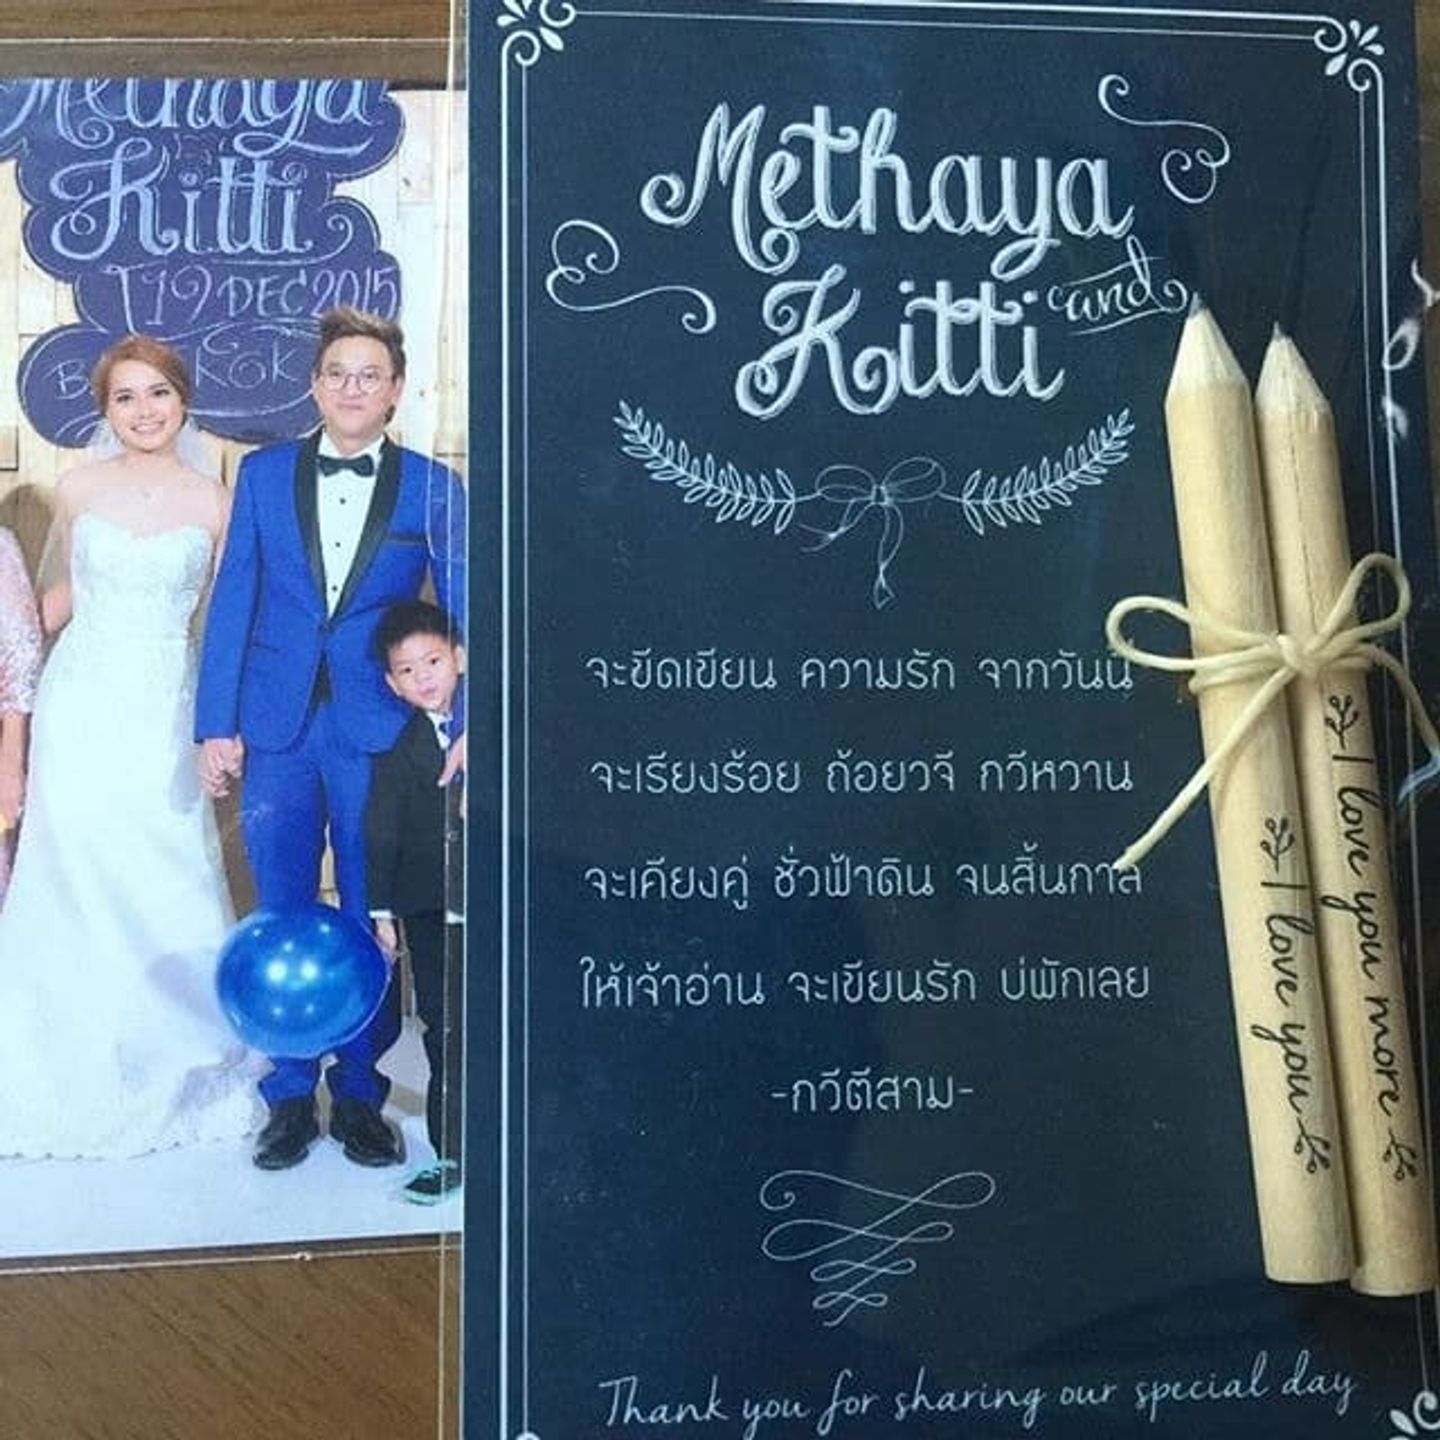 Methaya
Kitti
19 DEC 2015
Methaya
and
Kitti
จะขีดเขียน ความรัก จากวันนี้
จะเรียงร้อย ถ้อยวจี กวีหวาน
จะเคียงคู่ ชั่วฟ้าดิน จนสิ้นกาล
ให้เจ้าอ่าน จะเขียนรัก บ่พักเลย
-กวีตีสาม-
I love you
I love you more
Thank you for sharing our special day